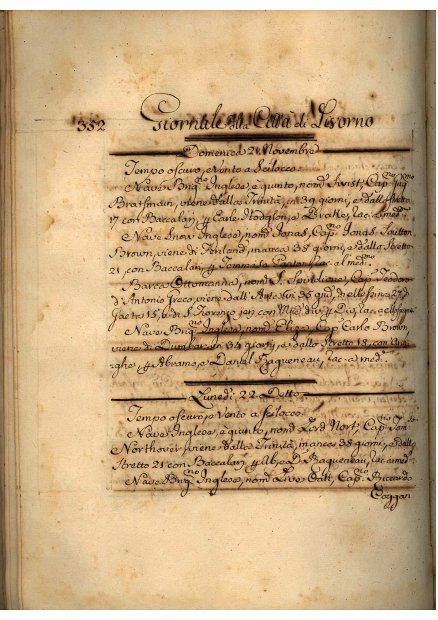 352 Giornale della Città di Livorno
Domenica 21 Novembre
Tempo oscuro, e Vento a Scilocco
Nave Bng.no Inglese, è giunto, nom.
Bratsman, viene dalla Trinità, in 39 giorni, e dallo Stretto
17 con Baccalari, Earle Hodgson, e Drake,
Nave Snow Inglese, nom. Jonas, Cap.no Jonas
Brown, viene di Ferland, manca 38 giorni, e dallo Stretto
21 con Baccalari, Tommaso al med.mo
Barca Ottomanna, nom. S. Spiridione, Cap.no Teodoro
d'Antonio Greco, viene dall' in 36
15, S. Fiorenzo
Nave Bng.no Inglese, nom. Eliza, Cap.no Carlo Brown,
viene di Dumbar, in 34 giorni, e dallo Stretto 18, con
Abramo, e Daniel Ragueneau, al med.
Lunedì 22 Detto
Tempo oscuro, e Vento a Scilocco
Nave Inglese, è giunto, nom. Lord Nort, Cap.no
Northover, viene dalla Trinità, manca 38 giorni, e dallo
Stretto 21 con Baccalari, Ab. e D. Ragueneau,
Nave Bng.no Inglese, nom. Live Oak, Cap.no Riccardo
Coggan